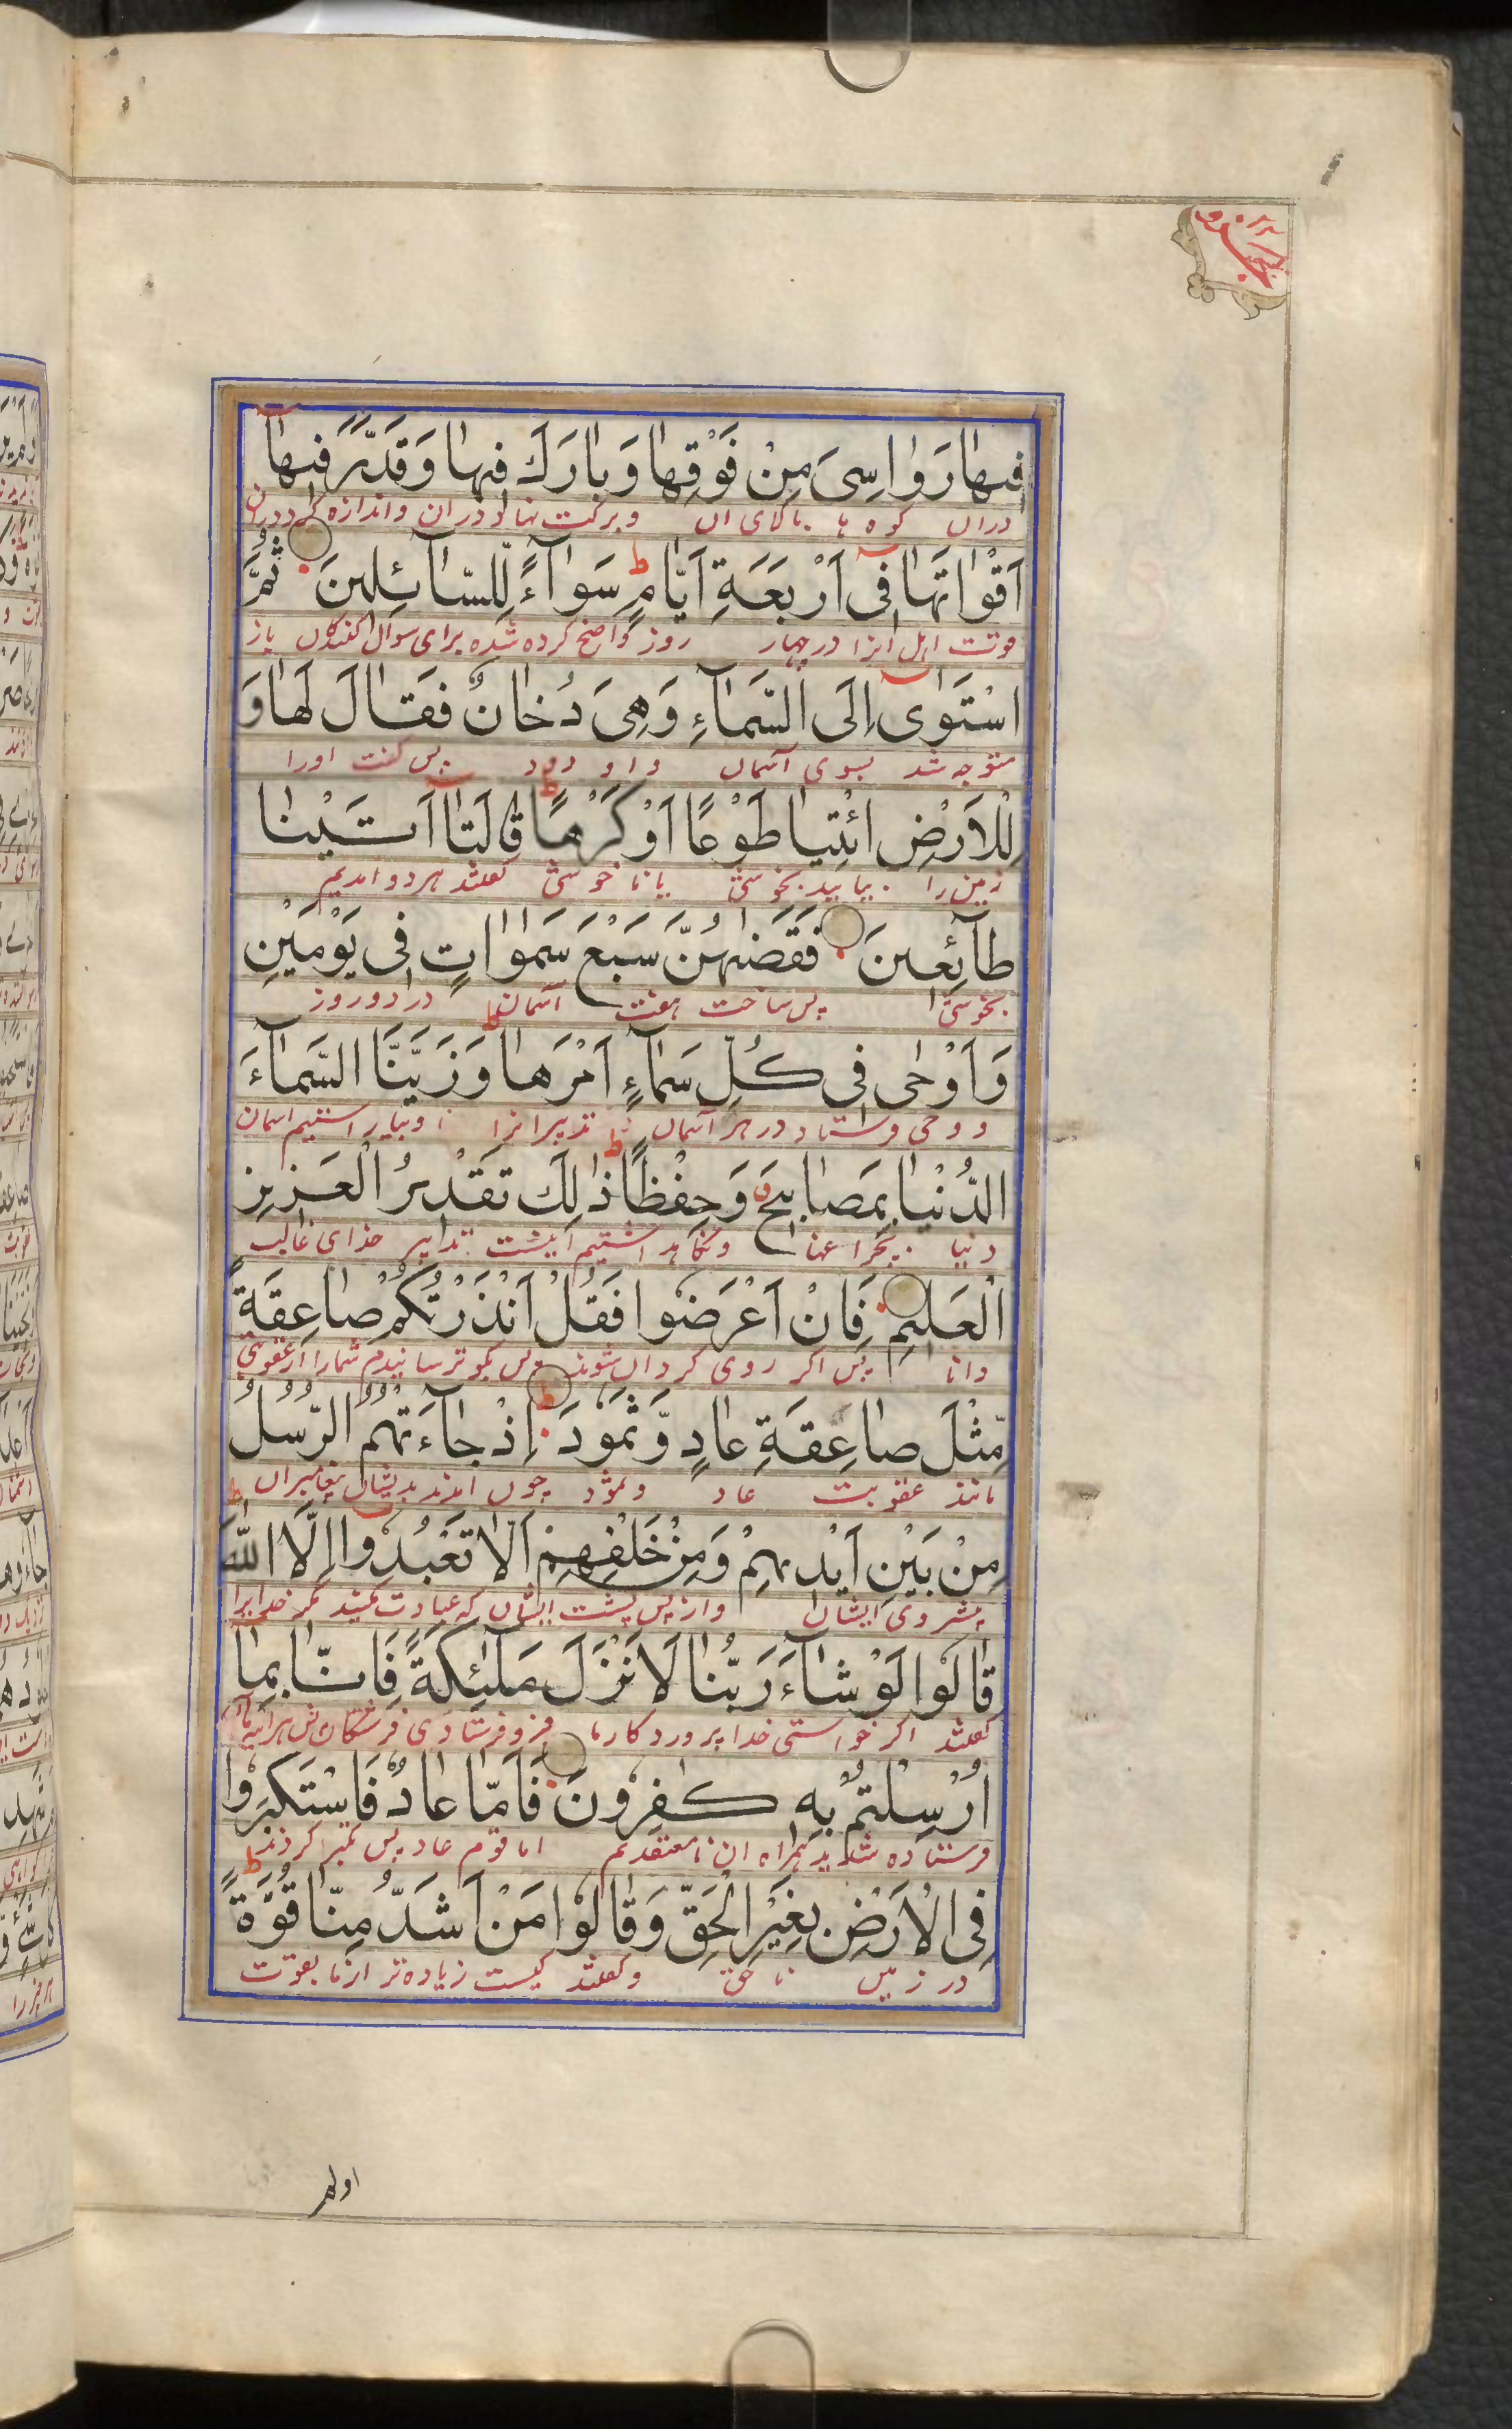 فِيهَا رَوَاسِىَ مِنْ فَوْقِهَا وَبَارَكَ فِيهَا وَقَدَّرَ فِيهَآ
دران کوه ها بالای آن وبرکت نهاد دران واندازه کرد دران
اَقْوَاتَهَا فِىٓ اَرْبَعَةِ اَيَّامٍ ط سَوَآءً لِّلسَّآئِلِينَ ثُمَّ
قوت اهل آنرا در چهار روز واضح کرده شده برای سوال کنندگان باز
اسْتَوٰىٓ اِلَى السَّمَآءِ وَهِىَ دُخَانٌ فَقَالَ لَهَا وَ
متوجه شد بسوی آسمان و او دود پس گفت اورا
لِلْاَرْضِ ائْتِيَا طَوْعًا اَوْ كَرْهًا ط قَالَتَآ اَتَيْنَا
زمین را بیایید بخوشی یا نا خوشی گفتند هر دو آمدیم
طَآئِعِينَ فَقَضٰهُنَّ سَبْعَ سَمٰوَاتٍ فِى يَوْمَيْنِ
بخوشی پس ساخت هفت آسمان در دو روز
وَاَوْحٰى فِى كُلِّ سَمَآءٍ اَمْرَهَا ط وَزَيَّنَّا السَّمَآءَ
و وحی فرستاد در هر آسمان تدبیر آنرا و بیاراستیم آسمان
الدُّنْيَا بِمَصَابِيحَ وَحِفْظًا ط ذٰلِكَ تَقْدِيرُ الْعَزِيزِ
دنیا بچراغها ونگاه داشتیم اینست تدبیر خدای غالب
الْعَلِيمِ فَاِنْ اَعْرَضُوا فَقُلْ اَنْذَرْتُكُمْ صَاعِقَةً
دانا پس اگر روی گردان شوند پس بگو ترسانیدم شمارا از عقوبتی
مِّثْلَ صَاعِقَةِ عَادٍ وَّثَمُودَ ط اِذْ جَآءَتْهُمُ الرُّسُلُ
مانند عقوبت عاد وثمود چون آمدند بدیشان پیغامبران
مِنْ بَيْنِ اَيْدِيهِمْ وَمِنْ خَلْفِهِمْ اَلَّا تَعْبُدُوٓا اِلَّا اللّٰهَ ط
پیش روی ایشان واز پس پشت ایشان که عبادت مکنید مگر خدایرا
قَالُوا لَوْ شَآءَ رَبُّنَا لَاَنْزَلَ مَلٰٓئِكَةً فَاِنَّا بِمَآ
گفتند اگر خواستی خدا پروردگار ما فرو فرستادی فرشتگان
اُرْسِلْتُمْ بِهٖ كٰفِرُونَ فَاَمَّا عَادٌ فَاسْتَكْبَرُوا
فرستاده شدید همراه آن نامعتقدیم اما قوم عاد پس تکبر کردند
فِى الْاَرْضِ بِغَيْرِ الْحَقِّ وَقَالُوا مَنْ اَشَدُّ مِنَّا قُوَّةً ط
در زمین نا حق وگفتند کیست زیاده تر از ما بقوت
اولم